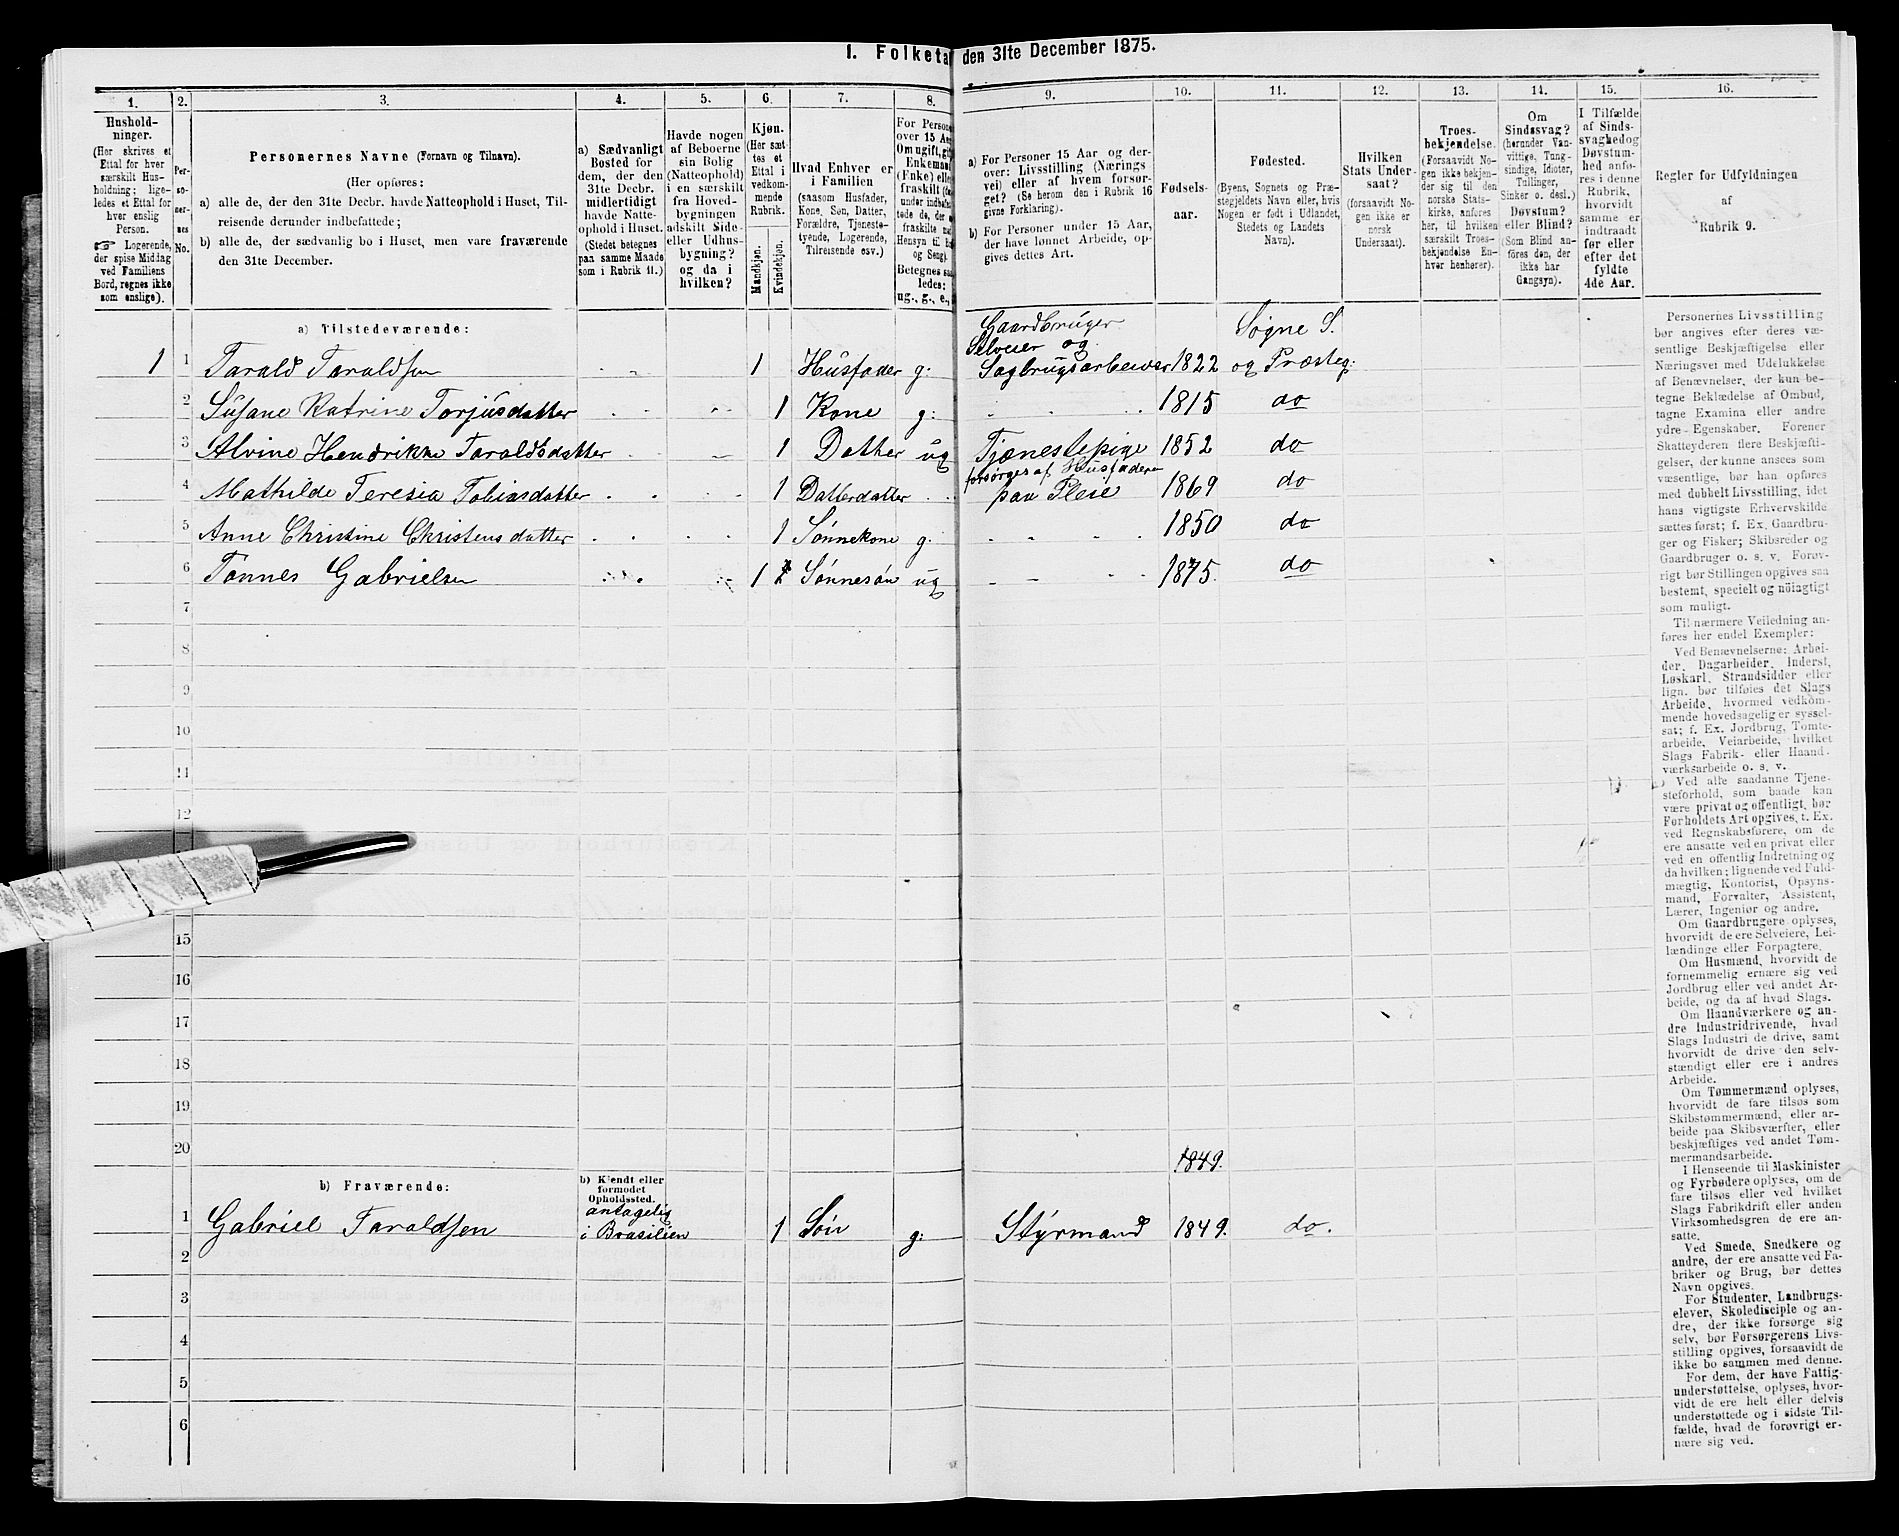 I. Folketa den 31te December 1875.
1. 2. 3. 4. 5. 6. 7. 8. 9. 10. 11. 12. 13. 14. 15. 16.
Hushold-
ninger.
(Her skrives et
Ettal for hver
særskilt Hus-
holdning; lige-
ledes et Ettal for
hver enslig
Person.
☞ Logerende,
der spise Middag
ved Familiens
Bord, regnes ikke
som enslige).
Per-
so-
ner-
nes
No.
Personernes Navne (Fornavn og Tilnavn).
(Her opføres:
a) alle de, der den 31te Decbr. havde Natteophold i Huset, Til-
reisende derunder indbefattede;
b) alle de, der sædvanlig bo i Huset, men vare fraværende
den 31te December.
a) Sædvanligt
Bosted for
dem, der den
31te Decbr.
midlertidigt
havde Natte-
ophold i Huset.
(Stedet betegnes
paa samme Maade
som i Rubrik 11.)
Havde nogen
af Beboerne
sin Bolig
(Natteophold)
i en særskilt
fra Hoved-
bygningen
adskilt Side-
eller Udhus-
bygning?
og da i
hvilken?
Kjøn.
(Her sæt-
tes et
Ettal i
vedkom-
mende
Rubrik.
Mandkjøn.
Kvindekjøn.
Hvad Enhver er
i Familien
(saasom Husfader,
Kone, Søn, Datter,
Forældre, Tjeneste-
tyende, Logerende,
Tilreisende osv.)
For Person
over 15 Aa
Om ugift, gi
Enkeman
(Enke) elle
fraskilt (
under indbefat-
tede de, der e
fraskilte me
Hensyn til B
og Seng).
Betegnes saa
ledes:
ug., g., e.,
a) For Personer 15 Aar og der-
over: Livsstilling (Nærings
vei) eller af hvem forsør-
get? (Se herom den i Rubrik 16
givne Forklaring).
b) For Personer under 15 Aar,
der have lønnet Arbeide, op-
gives dettes Art.
Fødsels-
aar.
Fødested.
(Byens, Sognets og Præ-
stegjeldets Navn, eller, hvis
Nogen er født i Udlandet,
Stedets og Landets
Navn).
Hvilken
Stats Under-
saat?
(forsaavidt No-
gen ikke er
norsk
Undersaat).
Troes-
bekjendelse.
(Forsaavidt No-
gen ikke bekjen-
der sig til den
norske Stats-
kirke, anføres
her, til hvilken
særskilt Troes-
bekjendelse En-
hver henhører).
Om
Sindssvag?
(herunder Van-
vittige, Tung-
sindige, Idioter,
Tullinger,
Sinker o. desl.)
Døvstum?
eller Blind?
(Som Blind an-
føres den, der
ikke har
Gangsyn).
I Tilfælde
af Sinds-
svaghed og
Døvstum-
hed anfø-
res i denne
Rubrik,
hvorvidt
samme er
indtraadt
før eller
efter det
fyldte
4de Aar.
Regler for Udfyldningen
af
Rubrik 9.
a) Tilstedeværende:
Gaardbruger
Selveier og
Søgne S.
1 1 Tarald Taraldsen 1 Husfader g: Sagbrugsarbeider 1822 og Præsteg:
2 Susane Katrine Torjusdatter 1 Kone g: 1815 do
3 Alvine Hendrikke Taraldsdatter 1 Datter ug Tjænestepige 1852 do
forsørges af Husfaderen
4 Mathilde Teresia Tobiasdatter 1 Datterdatter paa Pleie 1869 do
5 Anne Christine Christensdatter 1 Sønnekone g. 1850 do
6 Tønnes Gabrielsen 1 Sønnesøn ug 1875. do
7
8
9
10
11
12
15
16
17
18
19
20
1849.
b) Fraværende:
b) Kjendt eller
formodet
Opholdssted.
antagelig
1 Gabriel Taraldsen i Brasilien 1 Søn g: Styrmand 1849. do.
2
3
4
5
6
Personernes Livsstilling
bør angives efter deres væ-
sentlige Beskjæftigelse eller
Næringsvei med Udelukkelse
af Benævnelser, der kun be-
tegne Beklædelse af Ombud,
tagne Examina eller andre
ydre Egenskaber. Forener
Skatteyderen flere Beskjæfti-
gelser, der kunne ansees som
væsentlige, bør han opføres
med dobbelt Livsstilling, idet
hans vigtigste Erhvervskilde
sættes først; f. Ex. Gaardbru-
ger og Fisker; Skibsreder og
Gaardbruger o. s. v. Forøv-
rigt bør Stillingen opgives saa
bestemt, specielt og nøiagtigt
som muligt.
Til nærmere Veiledning an-
føres her endel Exempler:
Ved Benævnelserne: Arbei-
der, Dagarbeider, Inderst,
Løskarl, Strandsidder eller
lign. bør tilføies det Slags
Arbeide, hvormed vedkom-
mende hovedsagelig er syssel-
sat; f. Ex. Jordbrug, Tomte-
arbeide, Veiarbeide, hvilket
Slags Fabrik- eller Haand-
værksarbeide o. s. v.
Ved alle saadanne Tjene-
steforhold, som baade kan
være privat og offentligt, bør
Forholdets Art opgives, t. Ex.
ved Regnskabsførere, om de
ere ansatte ved en privat eller
ved en offentlig Indretning og
da hvilken; lignende ved Fuld-
mægtig, Kontorist, Opsyns-
mand, Forvalter, Assistent,
Lærer, Ingeniør og andre.
Om Gaardbrugere oplyses,
hvorvidt de ere Selveiere, Lei-
lændinge eller Forpagtere.
Om Husmænd, hvorvidt de
fornemmelig ernære sig ved
Jordbrug eller ved andet Ar-
beide, og da af hvad Slags.
Om Haandværkere og an-
dre Industridrivende, hvad
Slags Industri de drive, samt
hvorvidt de drive den selv-
stændigt eller ere i andres
Arbeide.
Om Tømmermænd oplyses,
hvorvidt de fare tilsøs som
Skibstømmermænd, eller ar-
beide paa Skibsværfter, eller
beskjæftiges ved andet Tøm-
mermandsarbeide.
I Henseende til Maskinister
og Fyrbødere oplyses, om de
fare tilsøs eller ved hvilket
Slags Fabrikdrift eller anden
Virksomhedsgren de ere an-
satte.
Ved Smede, Snedkere og
andre, der ere ansatte ved Fa-
briker og Brug, bør dettes
Navn opgives.
For Studenter, Landbrugs-
elever, Skoledisciple og an-
dre, der ikke forsørge sig
selv, bør Forsørgerens Livs-
stilling opgives, forsaavidt de
ikke bo sammen med denne.
For dem, der have Fattig-
understøttelse, oplyses, hvor-
vidt de ere helt eller delvis
understøttede og i sidste Til-
fælde, hvad de forøvrigt er-
nære sig ved.